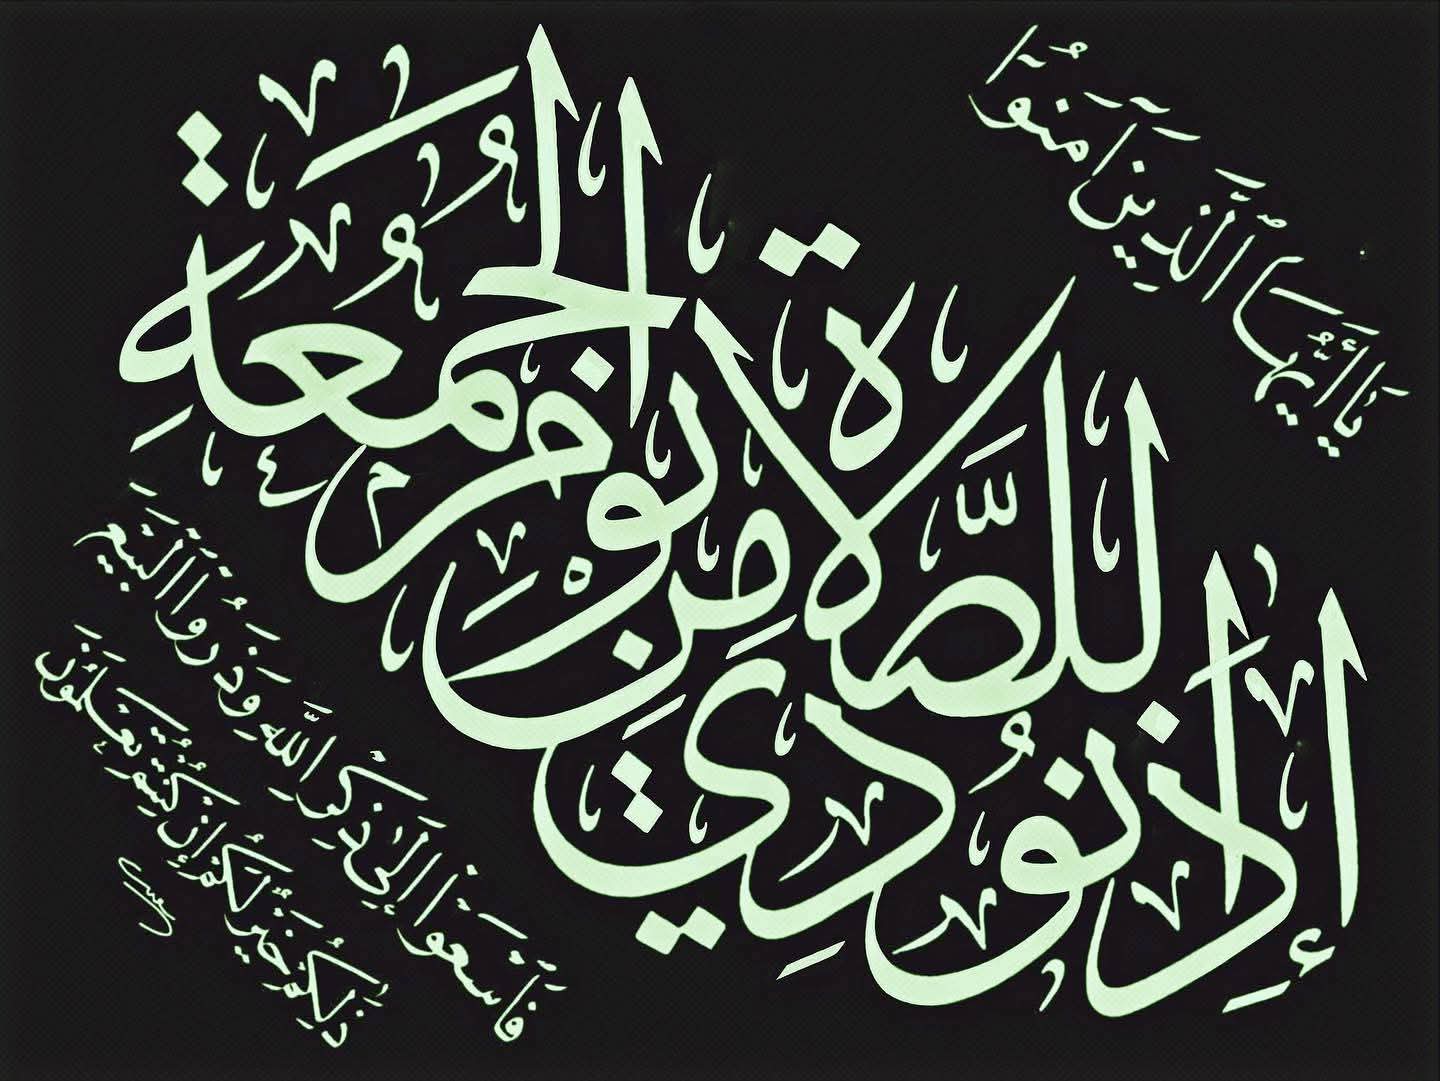 يَا أَيُّهَا ٱلَّذِينَ آمَنُوٓا
إِذَا نُودِيَ لِلصَّلَاةِ مِنْ يَوْمِ الْجُمُعَةِ
فَٱسْعَوْا۟ إِلَىٰ ذِكْرِ اللَّهِ وَذَرُوا۟ ٱلْبَيْعَ
ذَٰلِكُمْ خَيْرٌ لَكُمْ إِنْ كُنْتُمْ تَعْلَمُونَ